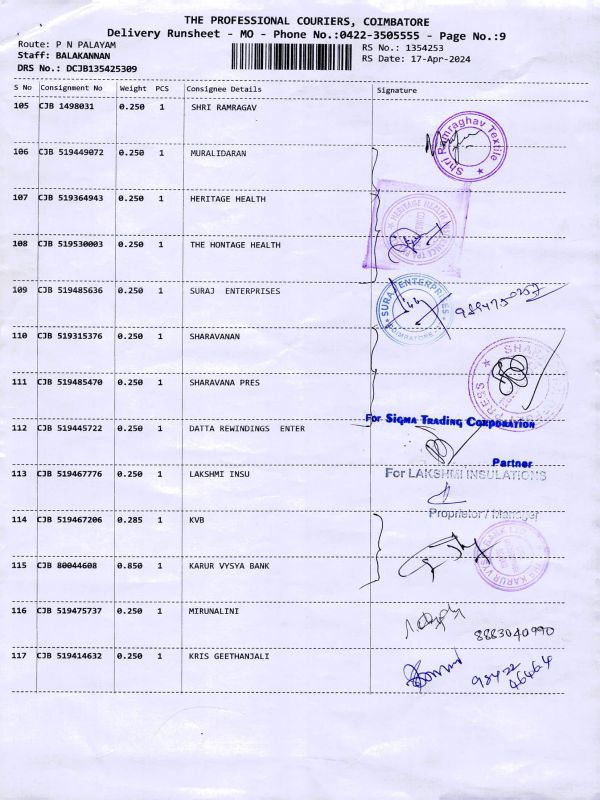 THE PROFESSIONAL COURIERS, COIMBATORE
Delivery Runsheet - MO - Phone No.:0422-3505555 - Page No.:9
Route: P N PALAYAM
RS No.: 1354253
Staff: BALAKANNAN
RS Date: 17-Apr-2024
DRS No.: DCJB135425309
S No Consignment No Weight PCS Consignee Details Signature
105 CJB 1498031 0.250 1 SHRI RAMRAGAV
Shri Ramraghav Textile
106 CJB 519449072 0.250 1 MURALIDARAN
107 CJB 519364943 0.250 1 HERITAGE HEALTH
HERITAGE HEALTH
108 CJB 519530003 0.250 1 THE HONTAGE HEALTH
109 CJB 519485636 0.250 1 SURAJ ENTERPRISES
SURAJ ENTERPRISES
COIMBATORE
110 CJB 519315376 0.250 1 SHARAVANAN
111 CJB 519485470 0.250 1 SHARAVANA PRES
PRESS
For SIGMA TRADING CORPORATION
112 CJB 519445722 0.250 1 DATTA REWINDINGS ENTER
Partner
113 CJB 519467776 0.250 1 LAKSHMI INSU
For LAKSHMI INSULATIONS
Proprietor / Manager
114 CJB 519467206 0.285 1 KVB
115 CJB 80044608 0.850 1 KARUR VYSYA BANK
THE KARUR VYSYA BANK LTD
116 CJB 519475737 0.250 1 MIRUNALINI
8883040990
117 CJB 519414632 0.250 1 KRIS GEETHANJALI
98422
46464